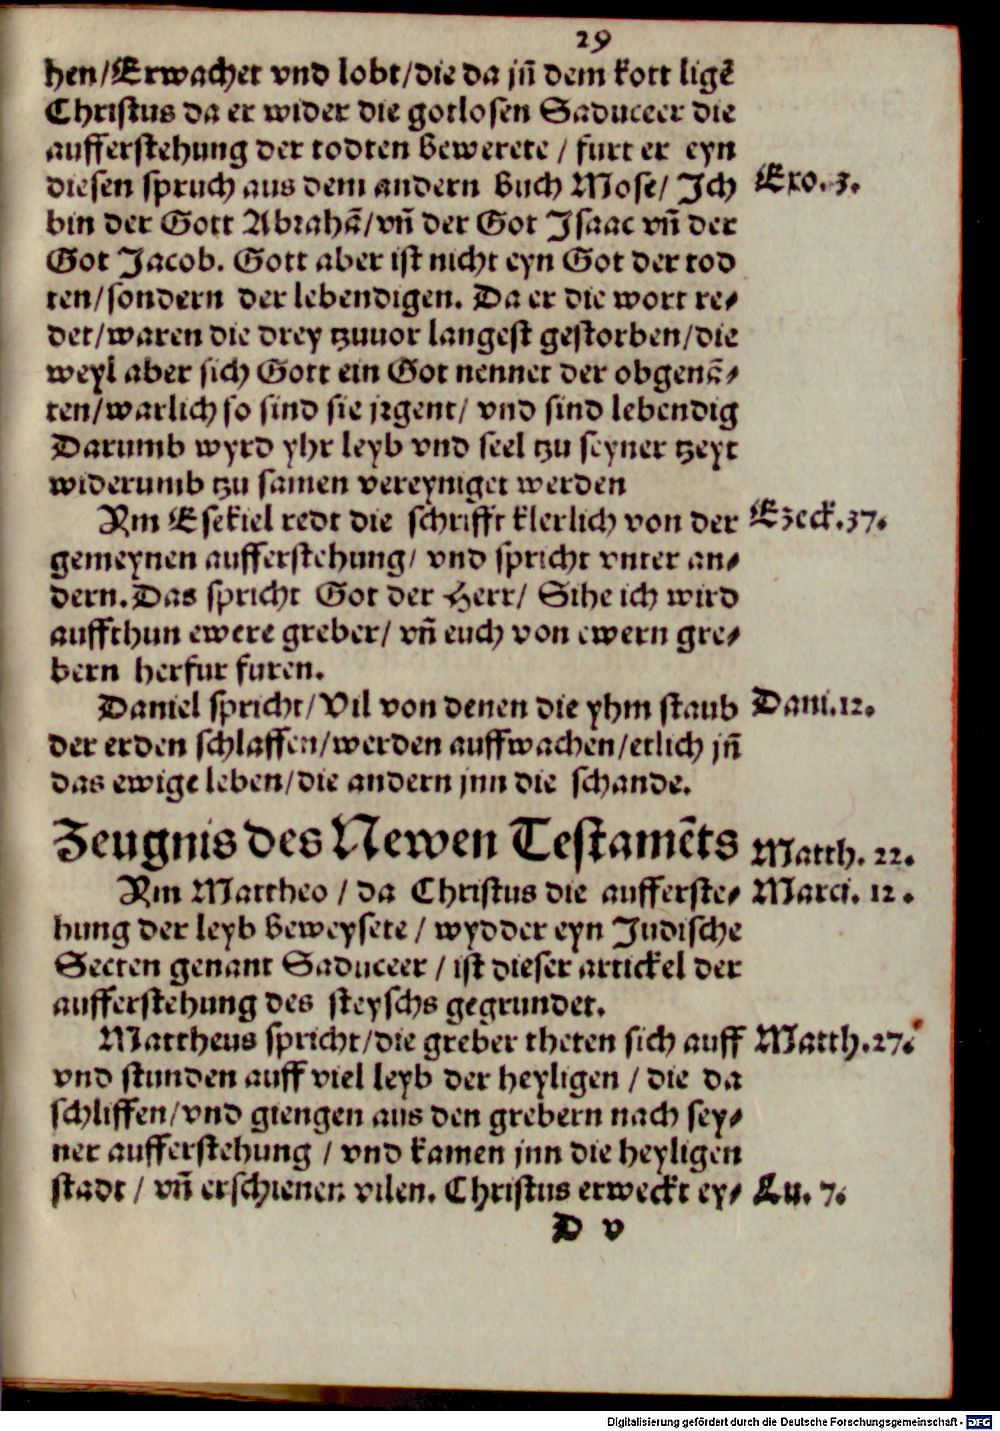 29
hen/Erwachet vnd lobt/die da jñ dem kott ligẽ
Christus da er wider die gotlosen Saduceer die
aufferstehung der todten bewerete / furt er eyn
diesen spruch aus dem andern buch Mose/ Jch Exo. 3.
bin der Gott Abrahã/vñ der Got Jsaac vñ der
Got Jacob. Gott aber ist nicht eyn Got der tod
ten/sondern der lebendigen. Da er die wort re⸗
det/waren die drey tzuuor langest gestorben/die
weyl aber sich Gott ein Got nennet der obgenã⸗
ten/warlich so sind sie jrgent/ vnd sind lebendig
Darumb wyrd yhr leyb vnd seel tzu seyner tzeyt
widerumb tzu samen vereyniget werden
Am Esekiel redt die schrifft klerlich von der Ezeck.37.
gemeynen aufferstehung/ vnd spricht vnter an⸗
dern. Das spricht Got der Herr/ Sihe ich wird
auffthun ewere greber/ vñ euch von ewern gre⸗
bern herfur furen.
Daniel spricht/Vil von denen die yhm staub Dani.12.
der erden schlaffen/werden auffwachen/etlich jñ
das ewige leben/die andern jnn die schande.
Zeugnis des Newen Testamẽts Matth. 22.
Am Mattheo / da Christus die aufferste⸗ Marci. 12.
hung der leyb beweysete / wydder eyn Judische
Secten genant Saduceer / ist dieser artickel der
aufferstehung des fleyschs gegrundet.
Mattheus spricht/die greber theten sich auff Matth.27.
vnd stunden auff viel leyb der heyligen / die da
schliffen/vnd giengen aus den grebern nach sey⸗
ner aufferstehung / vnd kamen jnn die heyligen
stadt / vñ erschienen vilen. Christus erweckt ey⸗ Lu. 7.
D v
Digitalisierung gefördert durch die Deutsche Forschungsgemeinschaft - DFG